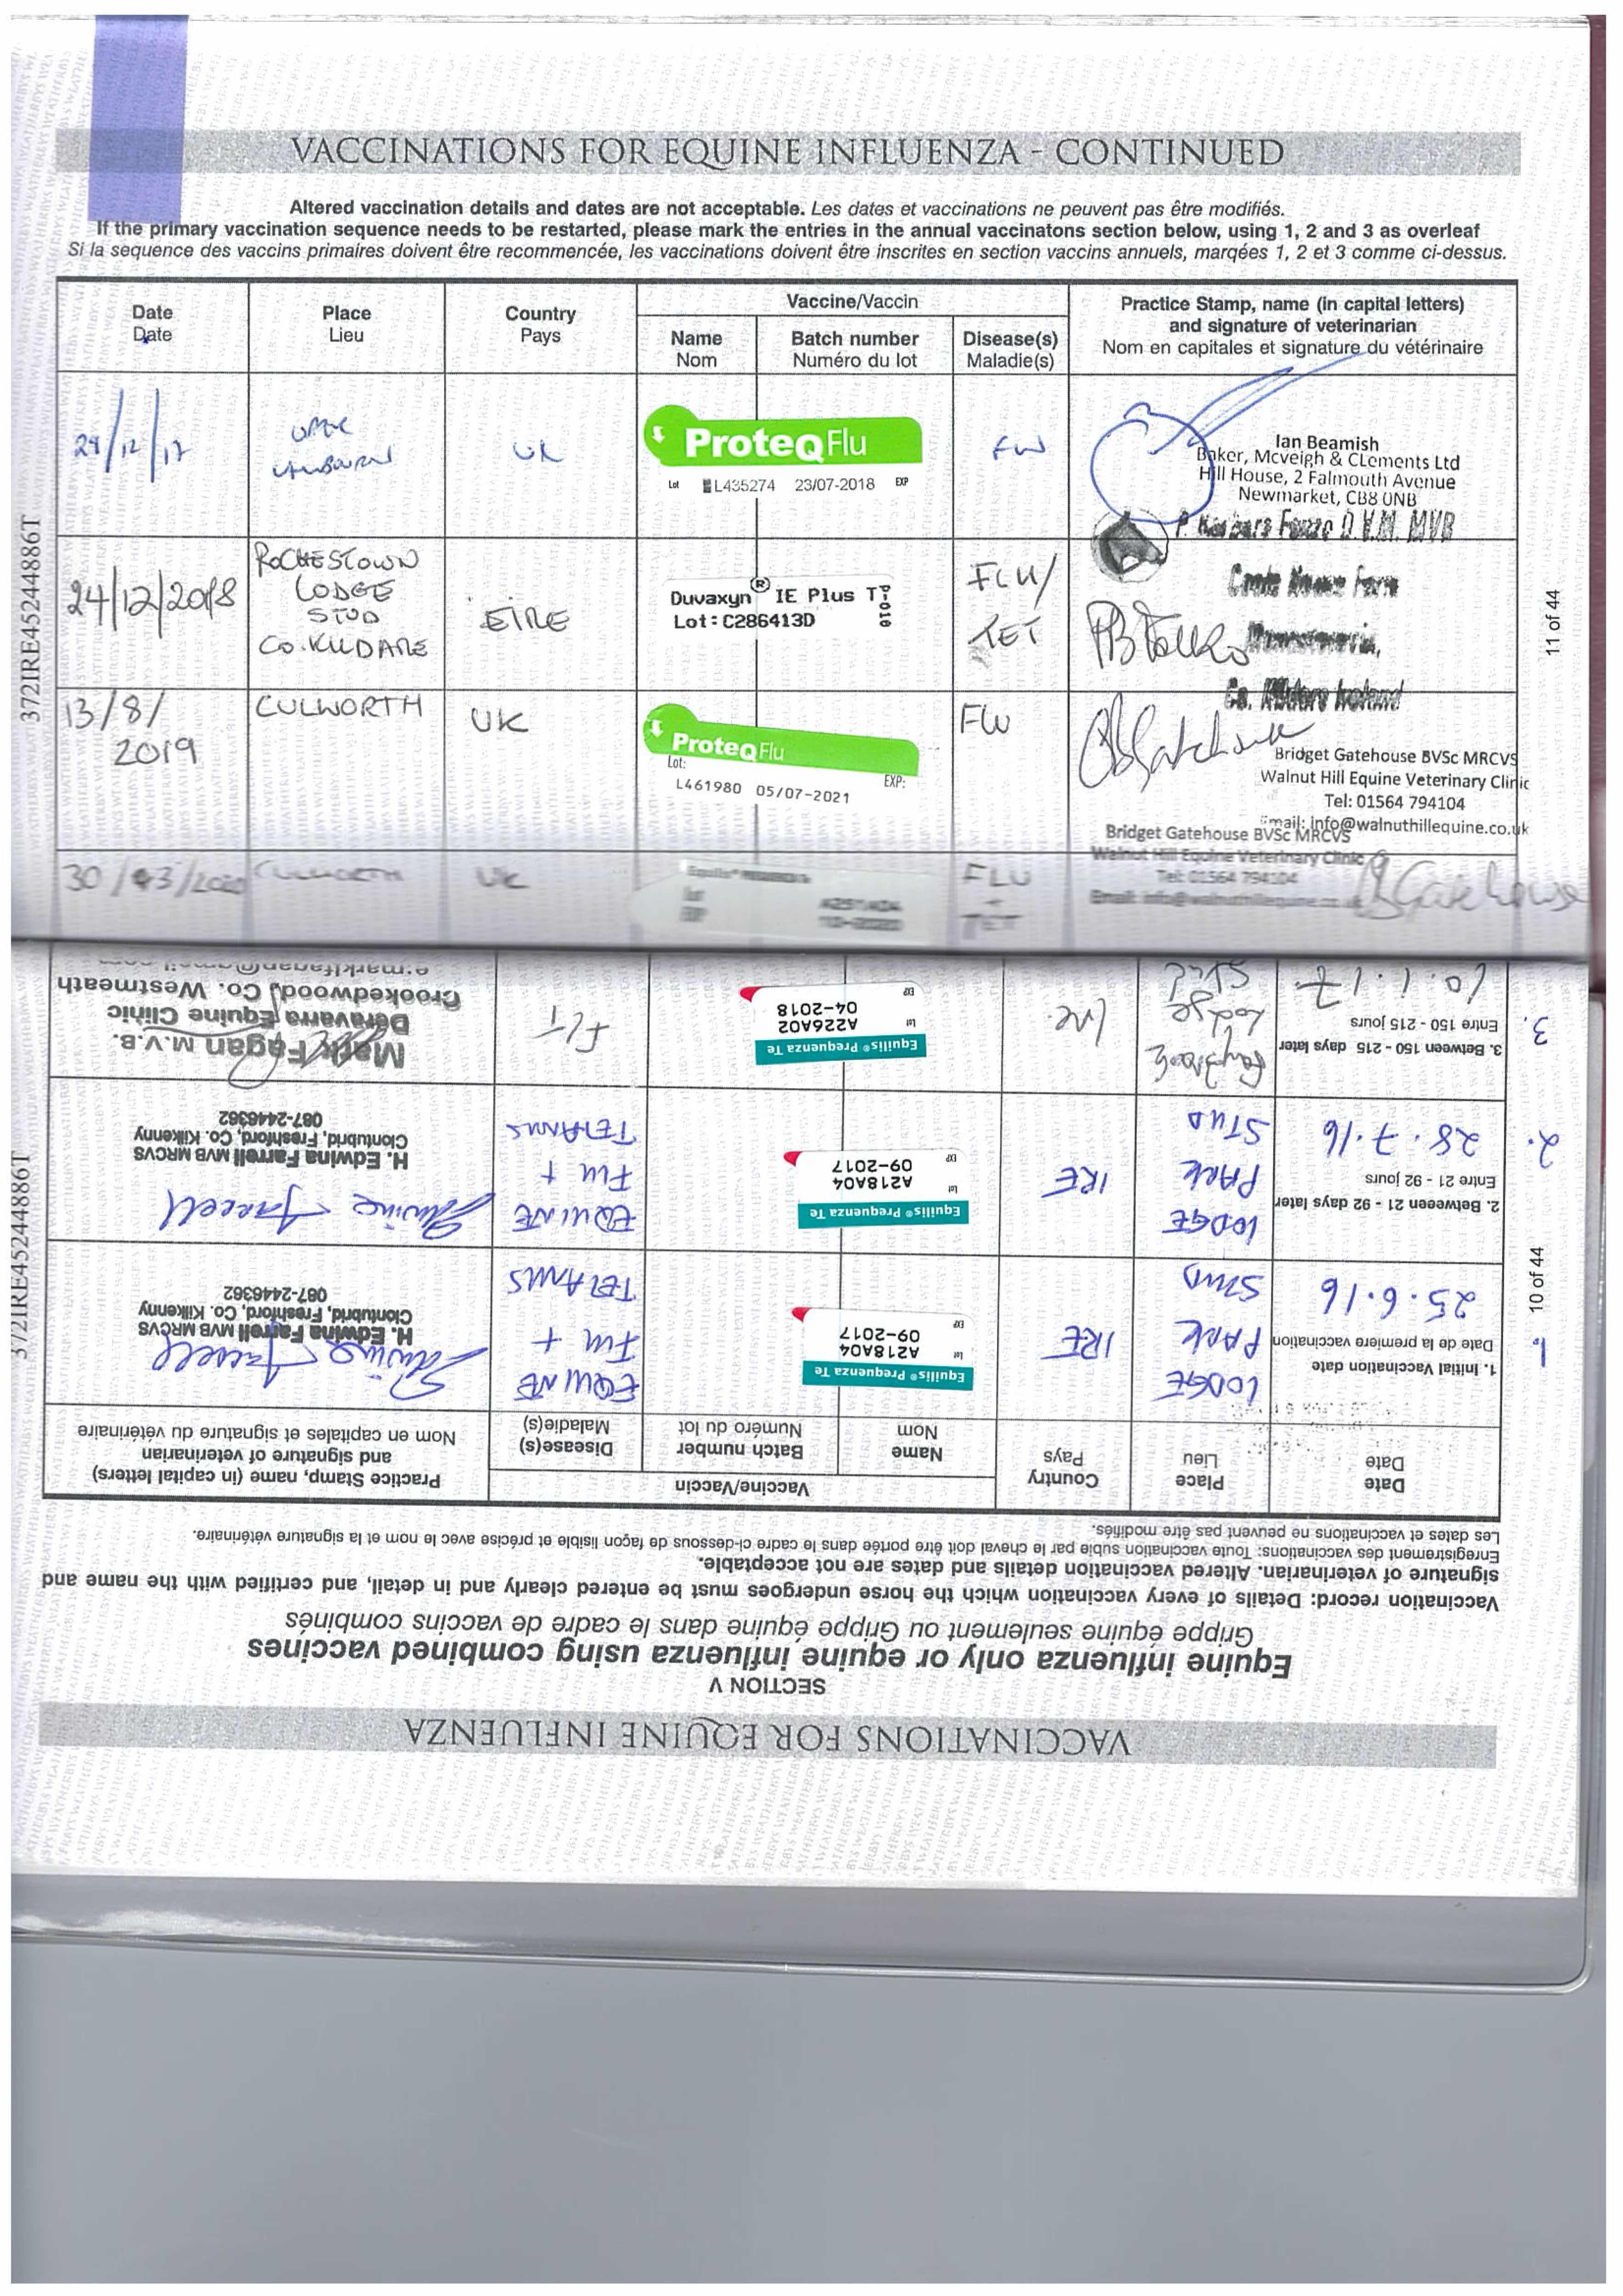 VACCINATIONS FOR EQUINE INFLUENZA - CONTINUED
Altered vaccination details and dates are not acceptable. Les dates et vaccinations ne peuvent pas être modifiés.
If the primary vaccination sequence needs to be restarted, please mark the entries in the annual vaccinatons section below, using 1, 2 and 3 as overleaf
Si la sequence des vaccins primaires doivent être recommencée, les vaccinations doivent être inscrites en section vaccins annuels, marqées 1, 2 et 3 comme ci-dessus.
372IRE45244886T
11 of 44
Date
Date
Place
Lieu
Country
Pays
Vaccine/Vaccin
Name
Nom
Batch number
Numéro du lot
Disease(s)
Maladie(s)
Practice Stamp, name (in capital letters)
and signature of veterinarian
Nom en capitales et signature du vétérinaire
/12/17
UK
ProteqFlu
Lot L435274 23/07-2018 EXP
Ian Beamish
Baker, Mcveigh & CLements Ltd
Hill House, 2 Falmouth Avenue
Newmarket, CB8 0NB
24/12/2018
ROCHESTOWN
LODGE
STUD
CO. KILDARE
EIRE
Duvaxyn® IE Plus T
Lot: C286413D
FLU/
TET
D.V.M. MVB
13/8/
2019
CULWORTH
UK
ProteqFlu
Lot:
EXP:
L461980 05/07-2021
Bridget Gatehouse BVSc MRCVS
Walnut Hill Equine Veterinary Clinic
Tel: 01564 794104
Email: info@walnuthillequine.co.uk
30/03/2020
CULWORTH
UK
FLU
+
TET
Bridget Gatehouse BVSc MRCVS
Walnut Hill Equine Veterinary Clinic
Tel: 01564 794104
Email: info@walnuthillequine.co.uk
VACCINATIONS FOR EQUINE INFLUENZA
SECTION V
Equine influenza only or equine influenza using combined vaccines
Grippe équine seulement ou Grippe équine dans le cadre de vaccins combinés
Vaccination record: Details of every vaccination which the horse undergoes must be entered clearly and in detail, and certified with the name and
signature of veterinarian. Altered vaccination details and dates are not acceptable.
Enregistrement des vaccinations: Toute vaccination subie par le cheval doit être portée dans le cadre ci-dessous de façon lisible et précise avec le nom et la signature vétérinaire.
Les dates et vaccinations ne peuvent pas être modifiés.
10 of 44
372IRE45244886T
Date
Date
Place
Lieu
Country
Pays
Vaccine/Vaccin
Name
Nom
Batch number
Numéro du lot
Disease(s)
Maladie(s)
Practice Stamp, name (in capital letters)
and signature of veterinarian
Nom en capitales et signature du vétérinaire
1.
1. Initial Vaccination date
Date de la premiere vaccination
25.6.16
LODGE
PARK
STUD
IRE
Equilis® Prequenza Te
Lot A218A04
EXP 09-2017
EQUINE
FLU +
TETANUS
Edwina Farrell
H. Edwina Farrell MVB MRCVS
Clontubrid, Freshford, Co. Kilkenny
087-2446362
2.
2. Between 21 - 92 days later
Entre 21 - 92 jours
28.7.16
LODGE
PARK
STUD
IRE
Equilis® Prequenza Te
Lot A218A04
EXP 09-2017
EQUINE
FLU +
TETANUS
Edwina Farrell
H. Edwina Farrell MVB MRCVS
Clontubrid, Freshford, Co. Kilkenny
087-2446362
3.
3. Between 150 - 215 days later
Entre 150 - 215 jours
10.1.17
Lodge
Ire.
Equilis® Prequenza Te
Lot A226A02
EXP 04-2018
F/T
Mark Fagan M.V.B.
Deravarra Equine Clinic
Crookedwood, Co. Westmeath